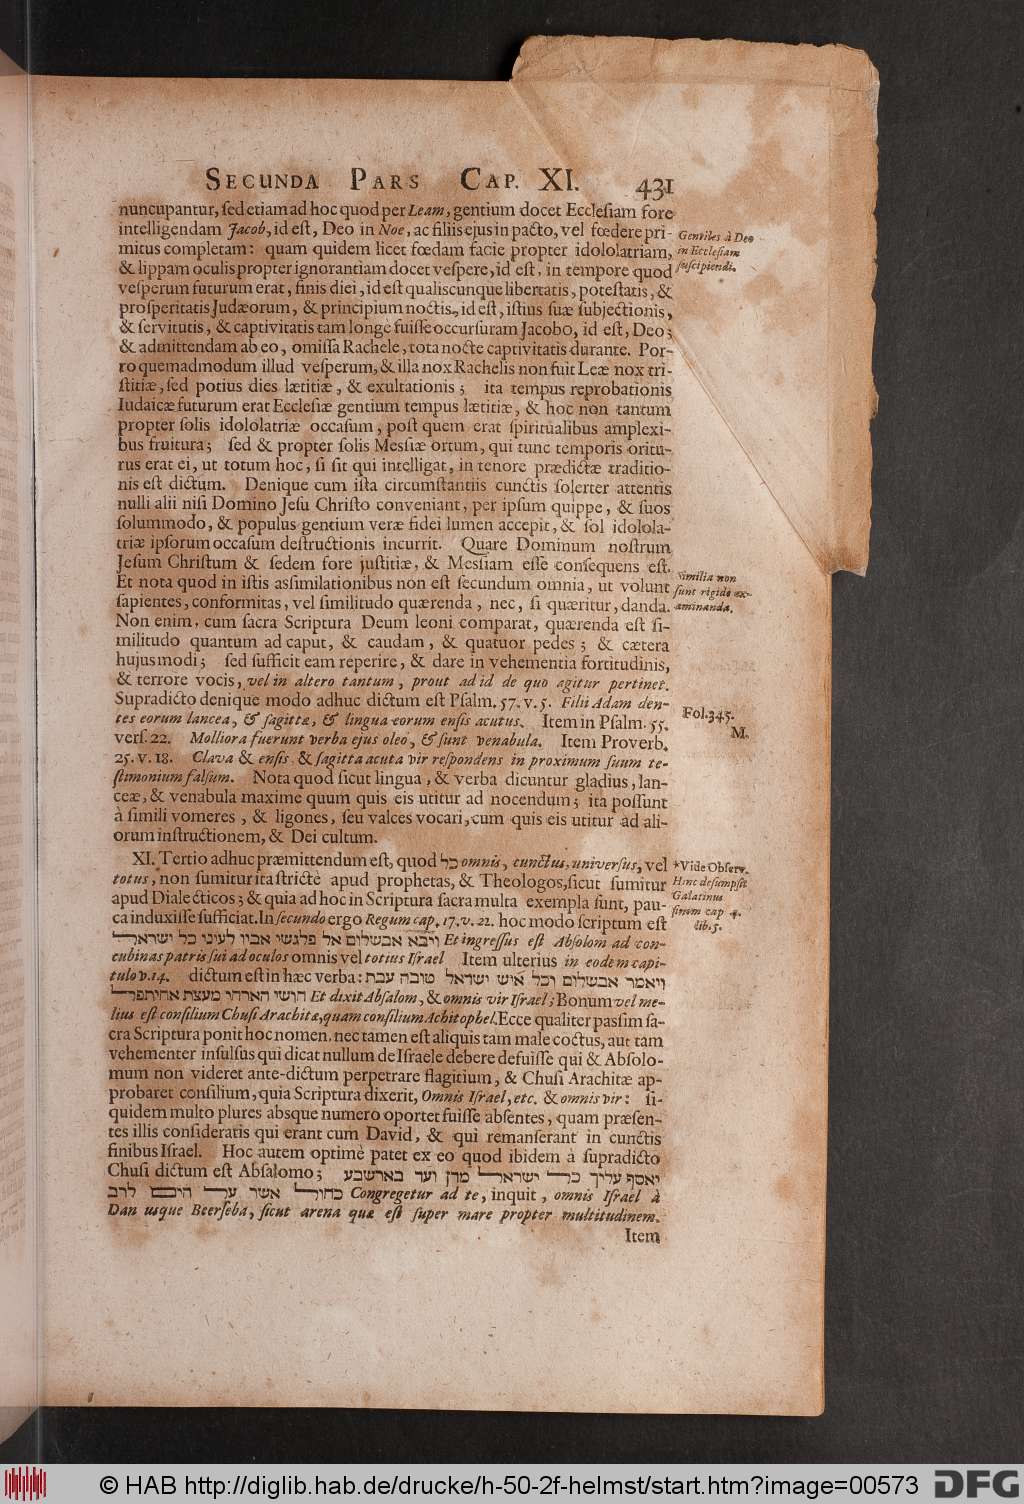 SECUNDA PARS CAP. XI. 431
nuncupantur, ſed etiam ad hoc quod per Leam, gentium docet Eccleſiam fore
intelligendam Jacob, id eſt, Deo in Noe, ac filiis ejus in pacto, vel fœdere pri-
mitus completam: quam quidem licet fœdam facie propter idololatriam,
& lippam oculis propter ignorantiam docet veſpere, id eſt, in tempore quod
veſperum futurum erat, finis diei, id eſt qualiscunque libertatis, poteſtatis, &
proſperitatis Judæorum, & principium noctis, id eſt, iſtius ſuæ ſubjectionis,
& ſervitutis, & captivitatis tam longe fuiſſe occurſuram Jacobo, id eſt, Deo;
& admittendam ab eo, omiſſa Rachele, tota nocte captivitatis durante. Por-
ro quemadmodum illud veſperum, & illa nox Rachelis non fuit Leæ nox tri-
ſtitiæ, ſed potius dies lætitiæ, & exultationis; ita tempus reprobationis
Iudaicæ futurum erat Eccleſiæ gentium tempus lætitiæ, & hoc non tantum
propter ſolis idololatriæ occaſum, poſt quem erat ſpiritualibus amplexi-
bus fruitura; ſed & propter ſolis Mesſiæ ortum, qui tunc temporis oritu-
rus erat ei, ut totum hoc, ſi ſit qui intelligat, in tenore prædictæ traditio-
nis eſt dictum. Denique cum iſta circumſtantiis cunctis ſolerter attentis
nulli alii niſi Domino Jeſu Chriſto conveniant, per ipſum quippe, & ſuos
ſolummodo, & populus gentium veræ fidei lumen accepit, & ſol idolola-
triæ ipſorum occaſum deſtructionis incurrit. Quare Dominum noſtrum
Jeſum Chriſtum & ſedem fore juſtitiæ, & Mesſiam eſſe conſequens eſt.
Et nota quod in iſtis asſimilationibus non eſt ſecundum omnia, ut volunt
ſapientes, conformitas, vel ſimilitudo quærenda, nec, ſi quæritur, danda.
Non enim, cum ſacra Scriptura Deum leoni comparat, quærenda eſt ſi-
militudo quantum ad caput, & caudam, & quatuor pedes; & cætera
hujusmodi; ſed ſufficit eam reperire, & dare in vehementia fortitudinis,
& terrore vocis, vel in altero tantum, prout ad id de quo agitur pertinet.
Supradicto denique modo adhuc dictum eſt Pſalm. 57. v. 5. Filii Adam den-
tes eorum lancea, & ſagittæ, & lingua eorum enſis acutus. Item in Pſalm. 55.
verſ. 22. Molliora fuerunt verba ejus oleo, & ſunt venabula. Item Proverb.
25. v. 18. Clava & enſis & ſagitta acuta vir reſpondens in proximum ſuum te-
ſtimonium falſum. Nota quod ſicut lingua, & verba dicuntur gladius, lan-
ceæ, & venabula maxime quum quis eis utitur ad nocendum; ita poſſunt
à ſimili vomeres, & ligones, ſeu valces vocari, cum quis eis utitur ad ali-
orum inſtructionem, & Dei cultum.
XI. Tertio adhuc præmittendum eſt, quod כל omnis, cunctus, univerſus, vel
totus, non ſumitur ita ſtrictè apud prophetas, & Theologos, ſicut ſumitur
apud Dialecticos; & quia ad hoc in Scriptura ſacra multa exempla ſunt, pau-
ca induxiſſe ſufficiat. In ſecundo ergo Regum cap. 17. v. 22. hoc modo ſcriptum eſt
ויבא אבשלום אל פלגשי אביו לעיני כל ישראל Et ingreſſus eſt Abſolom ad con-
cubinas patris ſui ad oculos omnis vel totius Iſrael Item ulterius in eodem capi-
tulo v. 14. dictum eſt in hæc verba: ויאמר אבשלום וכל איש ישראל טובה עבת
חושי הארחי מעצת אחיתפל Et dixit Abſalom, & omnis vir Iſrael; Bonum vel me-
lius eſt conſilium Chuſi Arachitæ, quam conſilium Achitophel. Ecce qualiter pasſim ſa-
cra Scriptura ponit hoc nomen, nec tamen eſt aliquis tam male coctus, aut tam
vehementer inſulſus qui dicat nullum de Iſraele debere defuiſſe qui & Abſolo-
mum non videret ante-dictum perpetrare flagitium, & Chuſi Arachitæ ap-
probaret conſilium, quia Scriptura dixerit, Omnis Iſrael, etc. & omnis vir: ſi-
quidem multo plures absque numero oportet fuiſſe abſentes, quam præſen-
tes illis conſideratis qui erant cum David, & qui remanſerant in cunctis
finibus Iſrael. Hoc autem optimè patet ex eo quod ibidem à ſupradicto
Chuſi dictum eſt Abſalomo; יאסף עליך כל ישראל מדן ועד בארשבע
כחול אשר על הים לרב Congregetur ad te, inquit, omnis Iſrael à
Dan usque Beerſeba, ſicut arena quæ eſt ſuper mare propter multitudinem.
Item
Gentiles à Deo
in Eccleſiam
ſuſcipiendi.
Similia non
ſunt rigide ex-
aminanda.
Fol. 345.
M.
*Vide Obſerv.
Hinc deſumpſit
Galatinus
cap 4.
lib. 5.
© HAB http://diglib.hab.de/drucke/h-50-2f-helmst/start.htm?image=00573 DFG